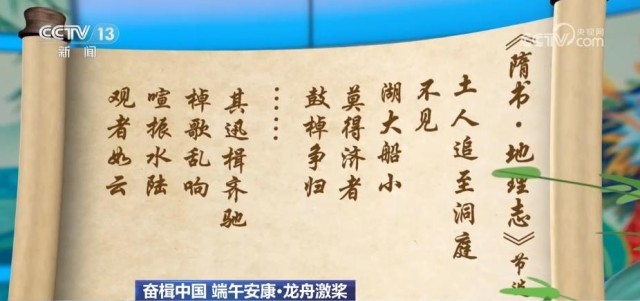 CCTV 13
新闻
CCTV 央视网
com
《隋书·地理志》节选
土人追至洞庭
不见
湖大船小
莫得济者
鼓棹争归
……
其迅楫齐驰
棹歌乱响
喧振水陆
观者如云
奋楫中国 端午安康·龙舟激桨